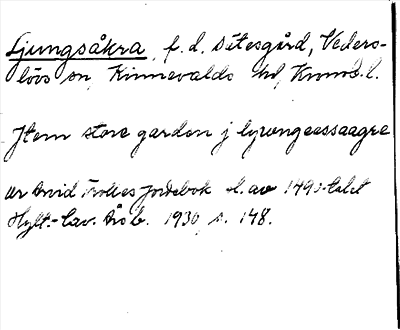 Ljungsåkra, f.d. sätesgård, Veders-
lövs sn, Kinnevalds hd, Kronob. l.
Jtem store garden j lywngeessaagre
ur Arvid Trolles jordebok d. av 1490-talet
Hylt.-Cav. Årsb. 1930, s. 148.